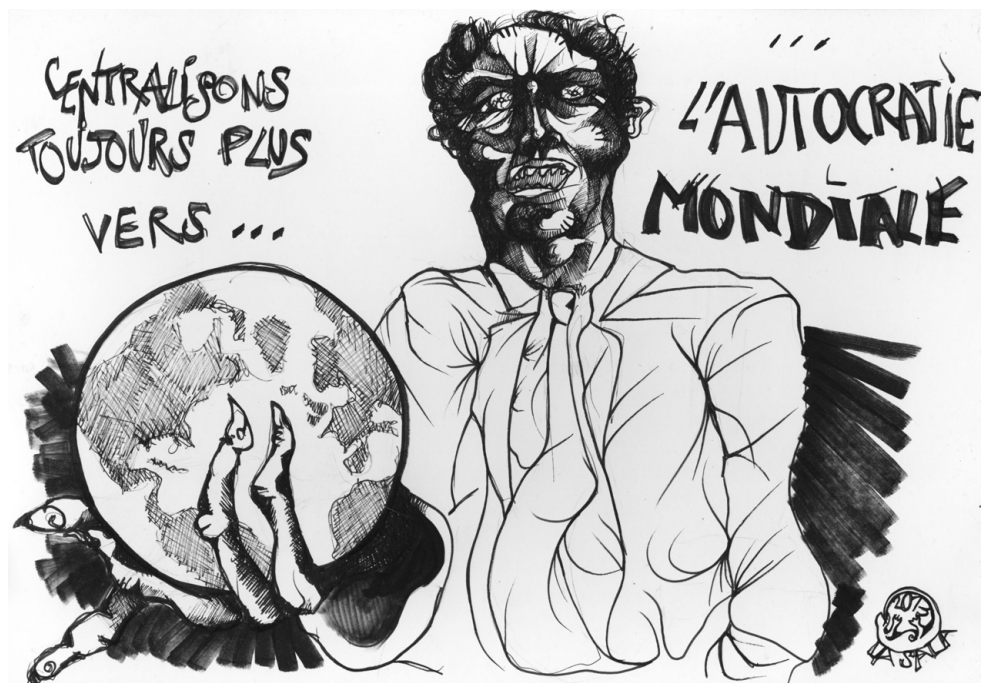 CENTRALISONS
TOUJOURS PLUS
VERS ...
...
L'AUTOCRATIE
MONDIALE